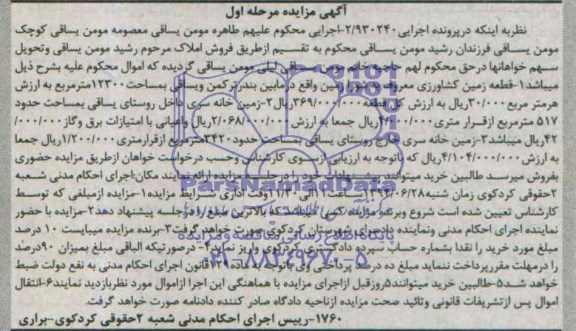 آگهی مزایده مرحله اول
نظربه اینکه درپرونده اجرایی ۲/۹۳۰۲۴۰-اجرایی محکوم علیهم طاهره مومن یساقی معصومه مومن یساقی کوچک
مومن یساقی فرزندان رشید مومن یساقی محکوم به تقسیم ازطریق فروش املاک مرحوم رشید مومن یساقی وتحویل
سهم خواهانها درحق محکوم لهم مومن یساقی لیلی مومن یساقی گردیده که اموال محکوم علیه بشرح ذیل
میباشد۱-قطعه زمین کشاورزی معروف زمین واقع درمابین بندرترکمن ویساقی بمساحت ۱۲۳۰۰مترمربع به ارزش
هرمتر مربع ۳۰/۰۰۰ریال به ارزش کل قطعه ۳۶۹/۰۰۰/۰۰۰ریال۲-زمین خانه سری داخل روستای یساقی بمساحت حدود
۵۱۷ مترمربع ازقرار متری ریال جمعا به ارزش ۲/۰۶۸/۰۰۰/۰۰۰ریال واعیانی با امتیازات برق وگاز
۴۲ریال میباشد۳-زمین خانه سری خارج روستای یساقی بمساحت حدود ۳۴۲۰مترمربع ازقرارمتری ۱/۲۰۰/۰۰۰ریال جمعا
به ارزش ۴/۱۰۴/۰۰۰/۰۰۰ریال که باتوجه به ارزیابی ازسوی کارشناس وحسب درخواست خواهان ازطریق مزایده حضوری
بفروش میرسد طالبین خرید میتوانند پیشنهادات خود را در جلسه مزایده ارائه نمایند مکان:اجرای احکام مدنی شعبه
۲حقوقی کردکوی زمان شنبه ساعت ۱۱الی ۱۱/۳۰وقت اداری شرایط مزایده۱-مزایده ازمبلغی که توسط
کارشناس تعیین شده است شروع وبرنده مزایده کسی میباشد که بالاترین مبلغ رادرجلسه پیشنهاد دهد۲-مزایده با حضور
نماینده اجرای احکام مدنی ونماینده دادسرای شهرستان کردکوی صورت خواهد گرفت۳-برنده مزایده میبایست ۱۰ درصد
مبلغ مورد خرید را نقدا بشماره حساب سپرده دادگستری کردکوی واریز نماید۴-درصورتیکه الباقی مبلغ بمیزان ۹۰درصد
را درمهلت مقررپرداخت ننماید مبلغ ده درصد پرداختی وی باتوجه بماده ۱۲۹قانون اجرای احکام مدنی به نفع دولت ضبط
خواهد شد۵-طالبین خرید میتوانند۵روزقبل ازاجرای مزایده با هماهنگی این اجرا ازاموال مورد نظربازدید نمایند۶-انتقال
اموال پس ازتشریفات قانونی وتائید صحت مزایده ازناحیه دادگاه صادر کننده دادنامه صورت خواهد گرفت.
۱۷۶۰-رییس اجرای احکام مدنی شعبه ۲حقوقی کردکوی-براری
ParsNamadData
پایگاه اطلاع رسانی مناقصه و مزایده
۰۲۱-۸۸۳۴۹۶۷۰-۵